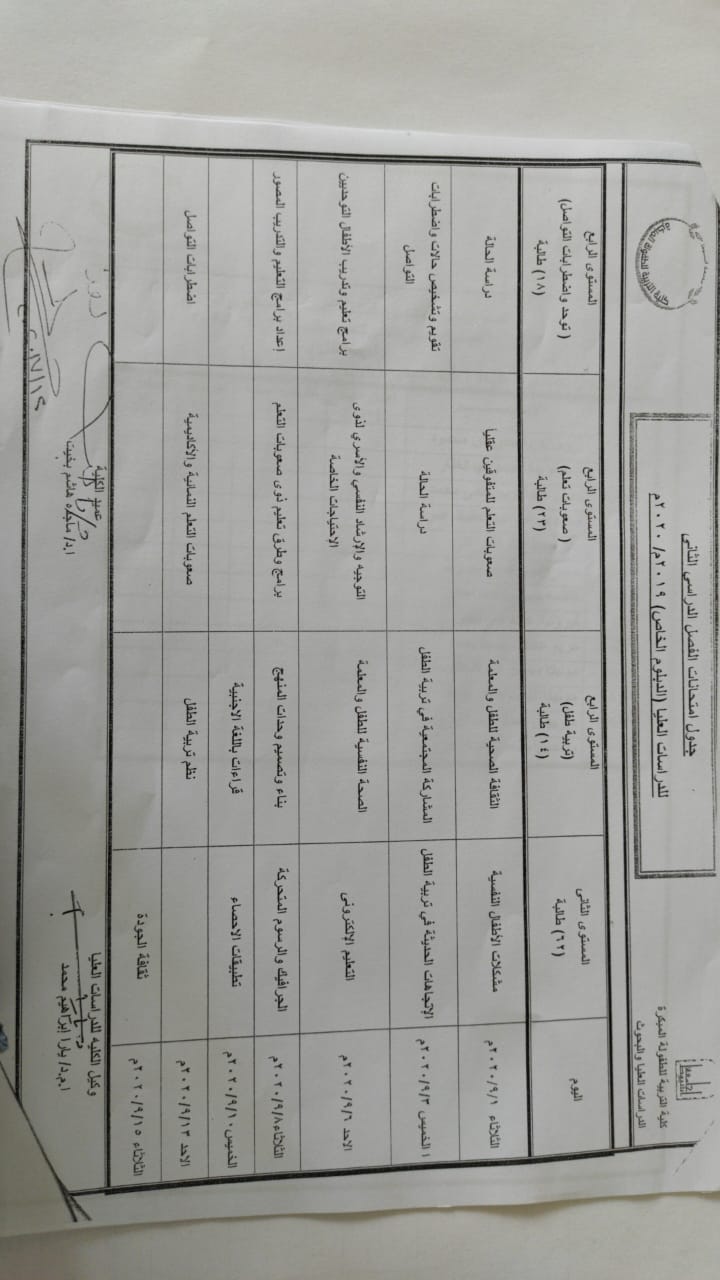 كلية التربية للطفولة المبكرة
الدراسات العليا والبحوث
جدول امتحانات الفصل الدراسي الثانى
للدراسات العليا (الدبلوم الخاص) ٢٠١٩م/٢٠٢٠م
اليوم
المستوى الثانى
(٦٢) طالبة
المستوى الرابع
(تربية طفل)
(١٤) طالبة
المستوى الرابع
(صعوبات تعلم)
(٢٣) طالبة
المستوى الرابع
(توحد واضطرابات التواصل)
(١٨) طالبة
الثلاثاء ٢٠٢٠/٩/١م
مشكلات الأطفال النفسية
الثقافة الصحية للطفل والمعلمة
صعوبات التعلم للمتفوقين عقلياً
دراسة الحالة
الخميس ٢٠٢٠/٩/٣م
الإتجاهات الحديثة في تربية الطفل
المشاركة المجتمعية في تربية الطفل
دراسة الحالة
تقويم وتشخيص حالات واضطرابات
التواصل
الاحد ٢٠٢٠/٩/٦م
التعليم الإلكترونى
الصحة النفسية للطفل والمعلمة
التوجيه والإرشاد النفسي والأسري لذوى
الاحتياجات الخاصة
برامج تعليم وتدريب الأطفال التوحديين
الثلاثاء ٢٠٢٠/٩/٨م
الجرافيك والرسوم المتحركة
بناء وتصميم وحدات المنهج
برامج وطرق تعليم ذوى صعوبات التعلم
إعداد برامج التعليم والتدريب المصور
الخميس ٢٠٢٠/٩/١٠م
تطبيقات الاحصاء
قراءات باللغة الاجنبية
الاحد ٢٠٢٠/٩/١٣م
نظم تربية الطفل
صعوبات التعلم النمائية والأكاديمية
اضطرابات التواصل
الثلاثاء ٢٠٢٠/٩/١٥م
ثقافة الجودة
وكيل الكلية للدراسات العليا
ا.م.د/ يارا إبراهيم محمد
عميد الكلية
ا.د/ ماجده هاشم بخيت